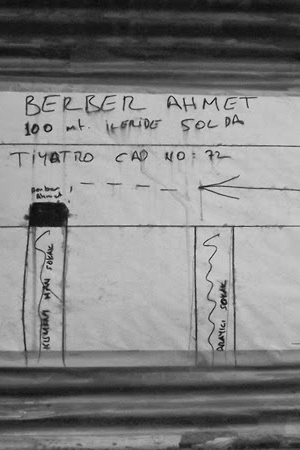 BERBER AHMET
100 mt. İLERİDE SOLDA
TİYATRO CAD NO: 72
Berber
Ahmet
HAN SOKAK
SOKAK